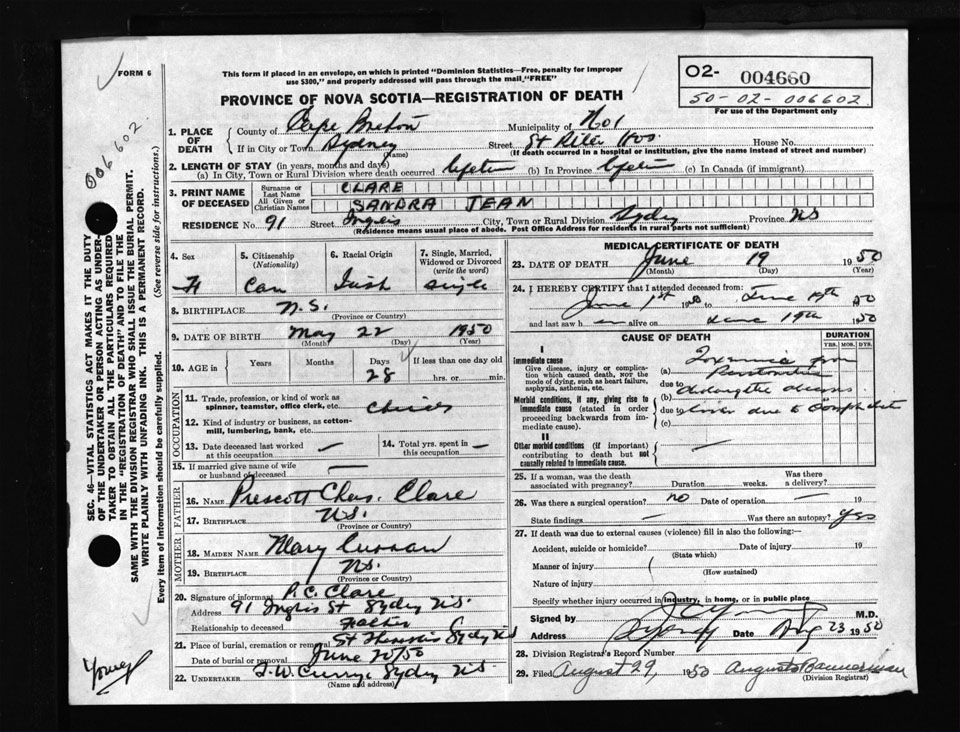 FORM 6
This form if placed in an envelope, on which is printed "Dominion Statistics—Free, penalty for improper
use $300," and properly addressed will pass through the mail "FREE"
PROVINCE OF NOVA SCOTIA—REGISTRATION OF DEATH
02- 004660
50-02-006602
For use of the Department only
006602
1. PLACE OF DEATH
County of Cape Breton Municipality of No 1
If in City or Town Sydney (Name) Street St Rita Hos. House No.
(If death occurred in a hospital or institution, give the name instead of street and number)
2. LENGTH OF STAY (in years, months and days)
(a) In City, Town or Rural Division where death occurred lifetime (b) In Province lifetime (c) In Canada (if immigrant)
3. PRINT NAME OF DECEASED
Surname or Last Name CLARE
All Given or Christian Names SANDRA JEAN
RESIDENCE No. 91 Street Ingles City, Town or Rural Division Sydney Province NS
(Residence means usual place of abode. Post Office Address for residents in rural parts not sufficient)
4. Sex F
5. Citizenship (Nationality) Can
6. Racial Origin Irish
7. Single, Married, Widowed or Divorced (write the word) single
8. BIRTHPLACE N.S.
(Province or Country)
9. DATE OF BIRTH May 22 1950
(Month) (Day) (Year)
10. AGE in Years Months Days 28 If less than one day old
hrs. or min.
OCCUPATION
11. Trade, profession, or kind of work as
spinner, teamster, office clerk, etc.
12. Kind of industry or business, as cotton-
mill, lumbering, bank, etc.
13. Date deceased last worked at this occupation —
14. Total yrs. spent in this occupation —
15. If married give name of wife
or husband of deceased —
FATHER
16. NAME Prescott Chas. Clare
17. BIRTHPLACE N.S.
(Province or Country)
MOTHER
18. MAIDEN NAME Mary Curran
19. BIRTHPLACE N.S.
(Province or Country)
20. Signature of informant P.C. Clare
Address 91 Ingles St Sydney N.S.
Relationship to deceased Father
21. Place of burial, cremation or removal Sydney NS
Date of burial or removal June 20/50
22. UNDERTAKER T.W. Curry, Sydney N.S.
(Name and address)
MEDICAL CERTIFICATE OF DEATH
23. DATE OF DEATH June 19 1950
(Month) (Day) (Year)
24. I HEREBY CERTIFY that I attended deceased from:
June 1st 1950 to June 19th 1950
and last saw h er alive on June 19th 1950
CAUSE OF DEATH DURATION
YRS. MOS. DYS.
I
Immediate cause
Give disease, injury or complica-
tion which caused death, NOT the
mode of dying, such as heart failure,
asphyxia, asthenia, etc.
(a) Toxemia from Peritonitis
due to
Morbid conditions, if any, giving rise to
immediate cause (stated in order
proceeding backwards from im-
mediate cause).
(b)
due to liver due to
(c)
II
Other morbid conditions (if important)
contributing to death but not
causally related to immediate cause. —
25. If a woman, was the death
associated with pregnancy? Duration weeks. Was there a delivery?
26. Was there a surgical operation? no Date of operation — 19
State findings — Was there an autopsy? Yes
27. If death was due to external causes (violence) fill in also the following:
Accident, suicide or homicide? Date of injury 19
(State which)
Manner of injury
(How sustained)
Nature of injury
Specify whether injury occurred in industry, in home, or in public place
Signed by M.D.
Address Sydney Date Aug 23 1950
28. Division Registrar's Record Number
29. Filed August 29, 1950 Augusta Bannerman
(Division Registrar)
SEC. 46—VITAL STATISTICS ACT MAKES IT THE DUTY
OF THE UNDERTAKER OR PERSON ACTING AS UNDER-
TAKER TO OBTAIN ALL THE PARTICULARS REQUIRED
IN THE "REGISTRATION OF DEATH" AND TO FILE THE
SAME WITH THE DIVISION REGISTRAR WHO SHALL ISSUE THE BURIAL PERMIT.
WRITE PLAINLY WITH UNFADING INK. THIS IS A PERMANENT RECORD.
Every item of information should be carefully supplied. (See reverse side for instructions.)